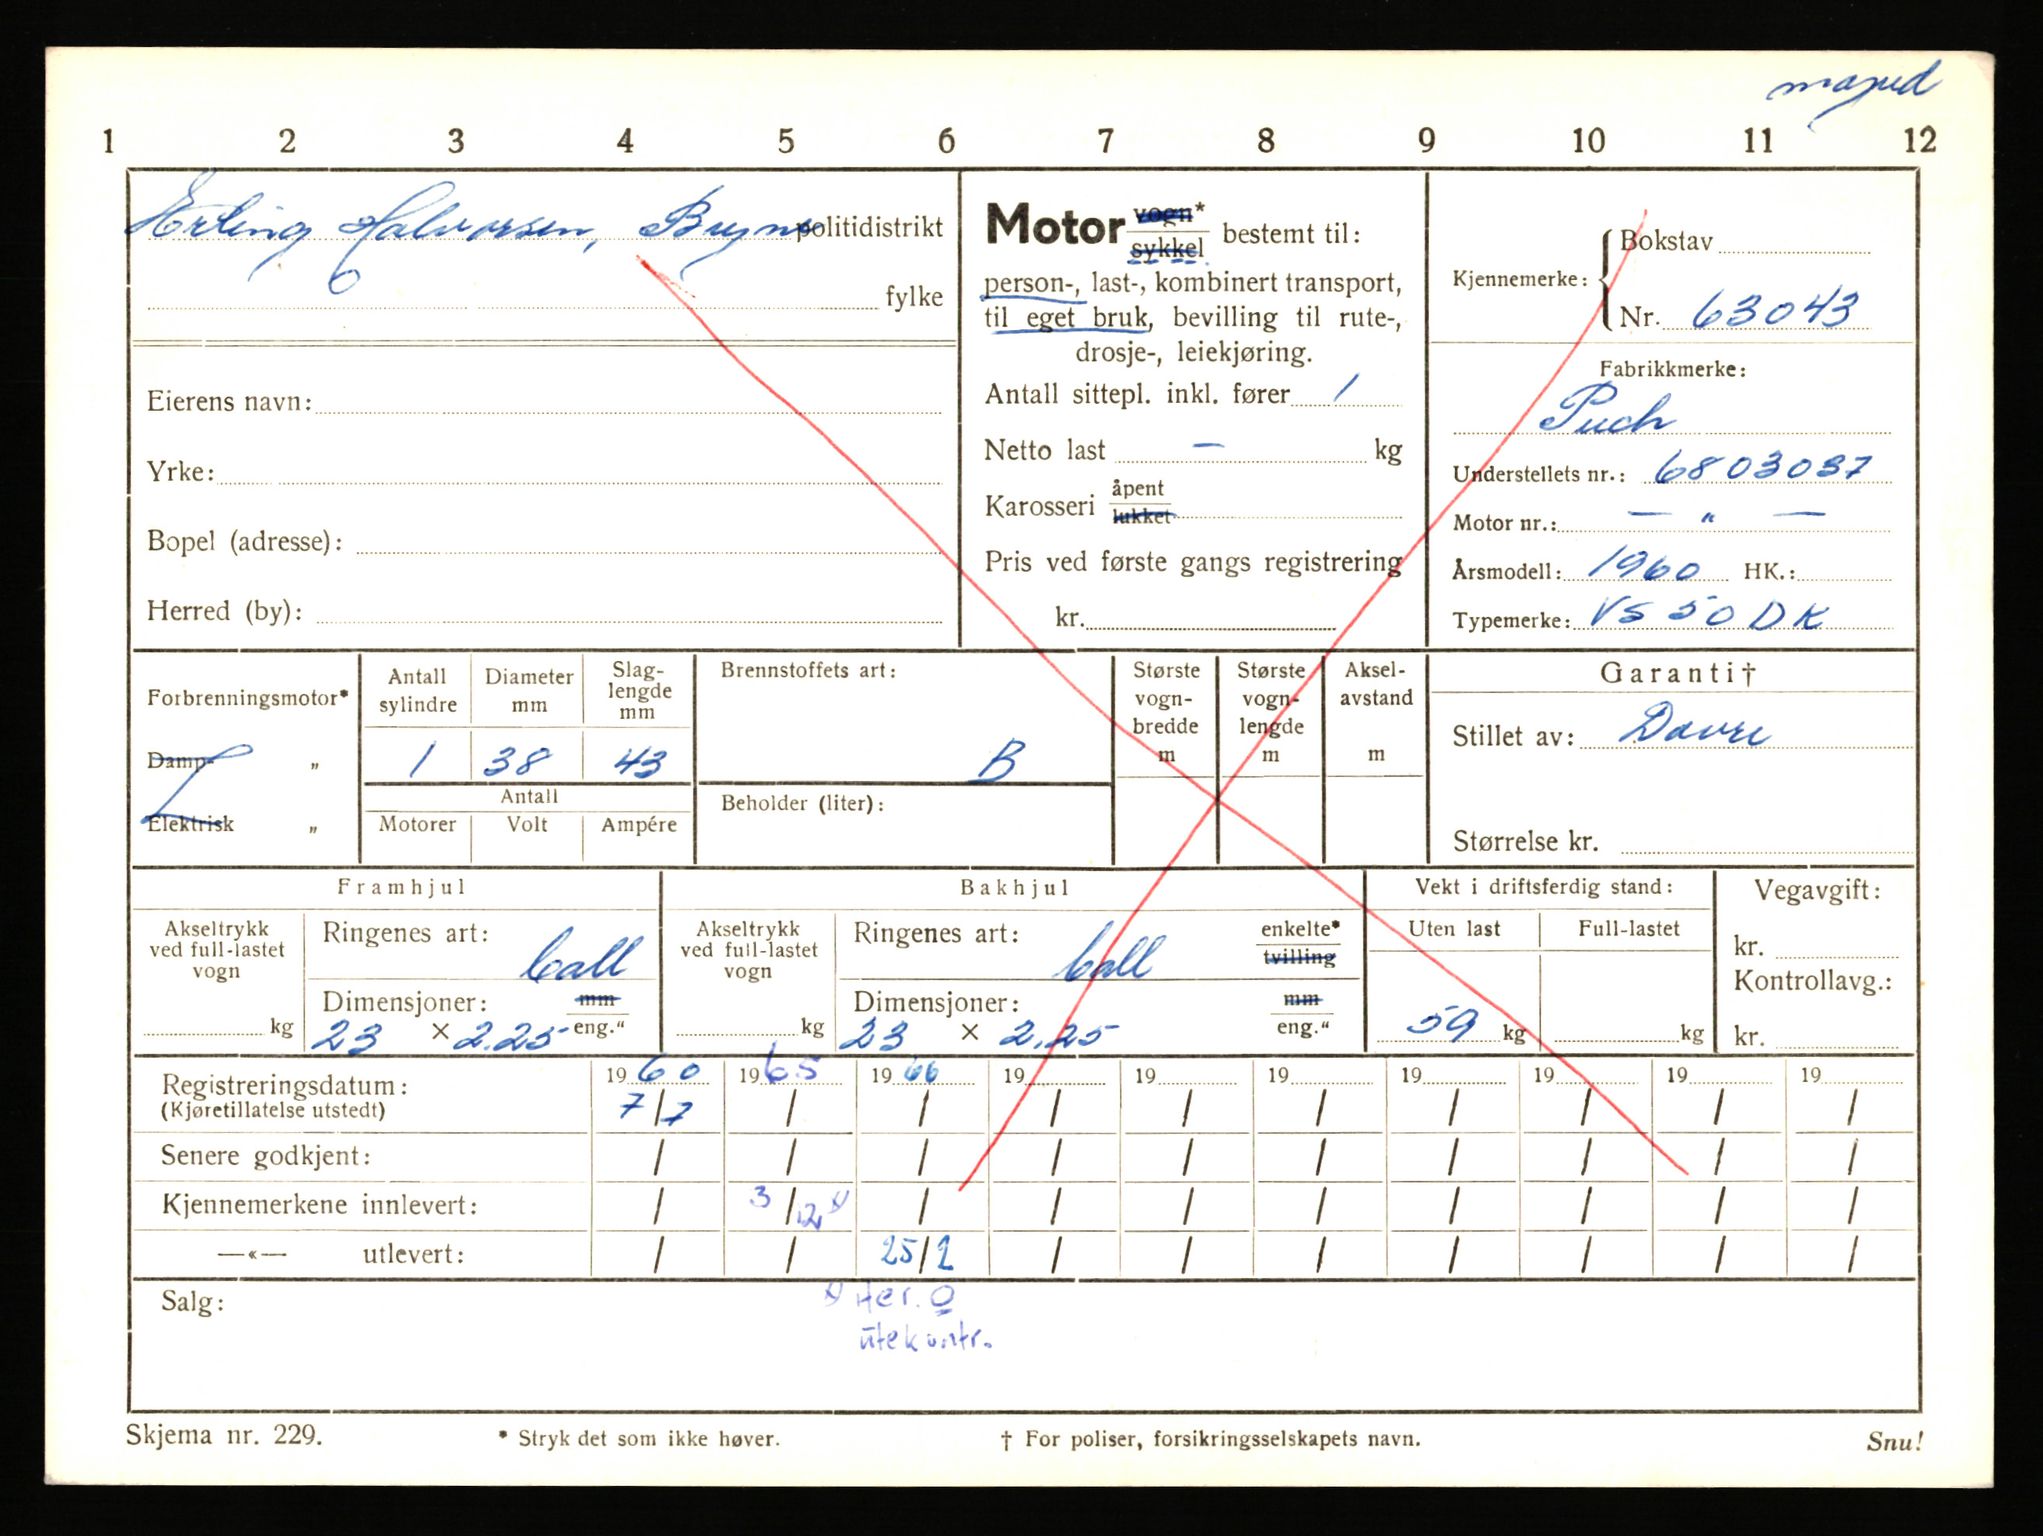 moped
1 2 3 4 5 6 7 8 9 10 11 12
Erling Halvorsen, Bryne politidistrikt
fylke
Eierens navn:
Yrke:
Bopel (adresse):
Herred (by):
Motor vogn* sykkel bestemt til:
person-, last-, kombinert transport,
til eget bruk, bevilling til rute-,
drosje-, leiekjøring.
Antall sittepl. inkl. fører 1
Netto last — kg
Karosseri åpent lukket
Pris ved første gangs registrering
kr.
Kjennemerke: Bokstav
Nr. 63043
Fabrikkmerke:
Puch
Understellets nr.: 6803037
Motor nr.: — " —
Årsmodell: 1960 HK.:
Typemerke: VS 50 DK
Forbrenningsmotor*
Damp- „
Elektrisk „
Antall sylindre
Diameter mm
Slag-lengde mm
1 38 43
Antall
Motorer Volt Ampére
Brennstoffets art:
B
Beholder (liter):
Største vogn-bredde m
Største vogn-lengde m
Aksel-avstand m
Garanti†
Stillet av: Dovre
Størrelse kr.
Framhjul
Akseltrykk ved full-lastet vogn
kg
Ringenes art:
ball
Dimensjoner: mm
23 × 2.25 eng."
Bakhjul
Akseltrykk ved full-lastet vogn
kg
Ringenes art: enkelte*
ball tvilling
Dimensjoner: mm
23 × 2.25 eng."
Vekt i driftsferdig stand:
Uten last Full-lastet
59 kg kg
Vegavgift:
kr.
Kontrollavg.:
kr.
Registreringsdatum: 1960 1965 1966 19 19 19 19 19 19 19
(Kjøretillatelse utstedt) 7/7 / / / / / / / / /
Senere godkjent: / / / / / / / / / /
Kjennemerkene innlevert: / 3/12 x) / / / / / / / /
—«— utlevert: / / 25/2 / / / / / / /
Salg:
x) Her. O
utekontr.
Skjema nr. 229.
* Stryk det som ikke høver.
† For poliser, forsikringsselskapets navn.
Snu!